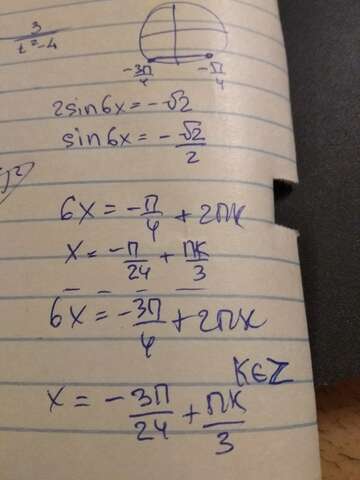 3
t²-4
-3π/4 -π/4
2sin6x = -√2
sin6x = -√2/2
6x = -π/4 + 2πk
x = -π/24 + πk/3
6x = -3π/4 + 2πk
k∈Z
x = -3π/24 + πk/3